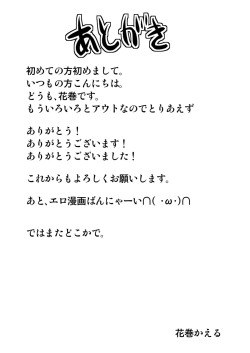 あとがき
初めての方初めまして。
いつもの方こんにちは。
どうも、花巻です。
もういろいろとアウトなのでとりあえず
ありがとう！
ありがとうございます！
ありがとうございました！
これからもよろしくお願いします。
あと、エロ漫画ばんにゃーい∩( ・ω・)∩
ではまたどこかで。
花巻かえる